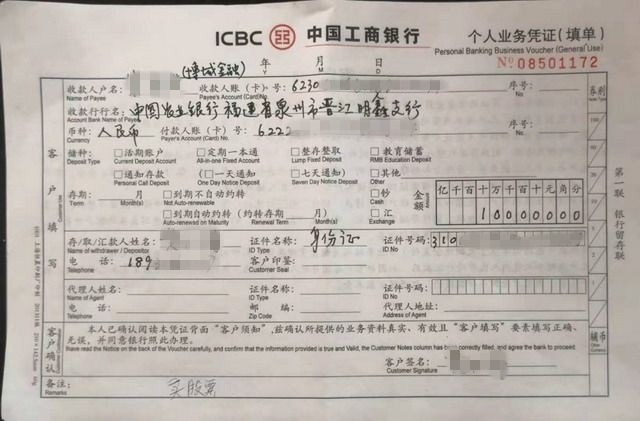 ICBC 中国工商银行 个人业务凭证(填单)
Personal Banking Business Voucher (General Use)
年 Y 月 M 日 D
№ 08501172
(博城金融)
收款人户名: 收款人账(卡)号: 6230 序号:
Name of Payee Payee's Account(Card) No.
收款行行名: 中国农业银行福建省泉州市晋江明鑫支行
Account Bank Name of Payee
币种: 人民币 付款人账(卡)号: 6222 序号:
Currency Payer's Account(Card) No.
储种: □活期账户 □定期一本通 □整存整取 □教育储蓄
Deposit Type Current Deposit Account All-in-one Fixed Account Lump Fixed Deposit RMB Education Deposit
□通知存款 □(一天通知) □(七天通知) □其他
Personal Call Deposit One Day Notice Deposit Seven Day Notice Deposit Other
存期: 月 □到期不自动约转 □钞 金额 亿千百十万千百十元角分
Term Month(s) Not Auto-renewable Cash Amount
□到期自动约转 (约转存期 月) □汇 10000000
Auto-renewed on Maturity Renewal Term Month(s) Exchange
存/取/汇款人姓名: 证件名称: 身份证 证件号码: 310
Name of withdrawer / Depositor ID Type ID No
电 话: 189 客户印签:
Telephone Customer Seal
代理人姓名: 证件名称: 证件号码:
Name of Agent ID Type ID No
电 话: 邮 编: 代理人地址:
Telephone Zip Code Address of Agent
本人已确认阅读本凭证背面“客户须知”,兹确认所提供的业务资料真实、有效且“客户填写”要素填写正确、
无误,并同意银行照此办理。
Have read the Notice on the Back of the Voucher carefully, and confirm that the information provided is true and Valid, the Customer Notes column has been correctly filled, and agree the bank to proceed.
客户签名:
Customer Signature
备注: 买股票
Remarks
客户填写
客户确认
券别
辅币
第一联 银行留存联